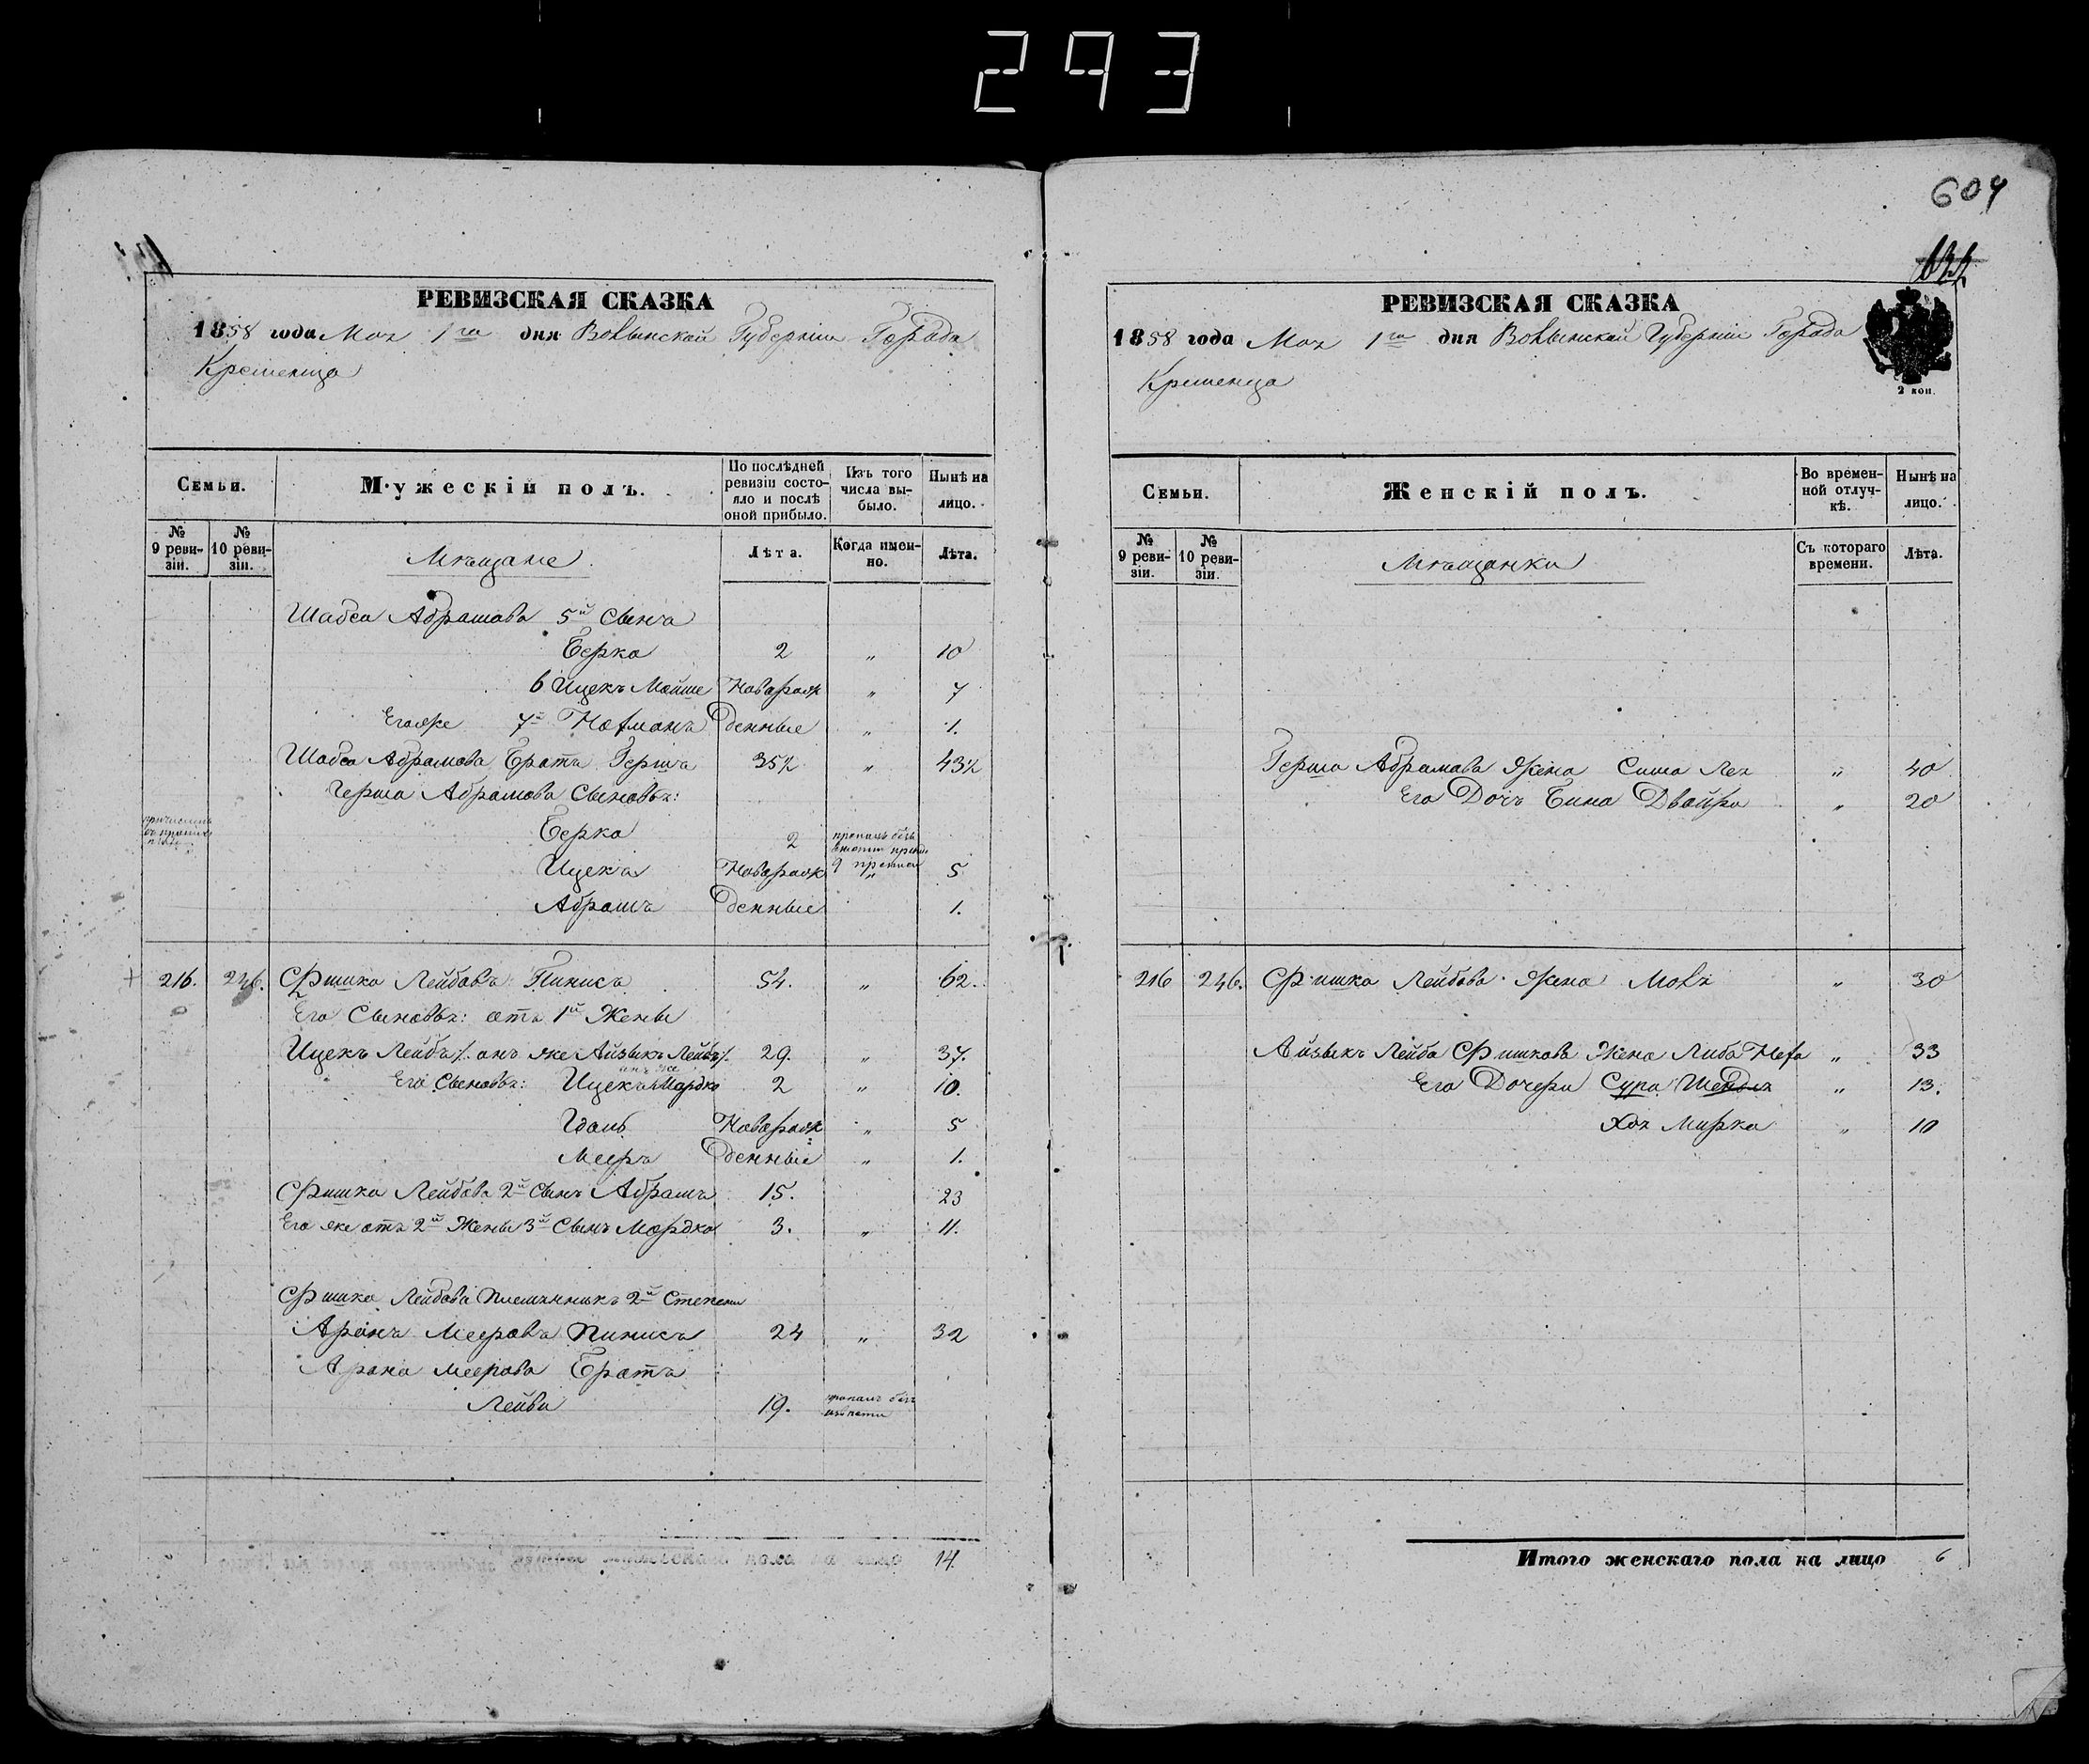 293
604
РЕВИЗСКАЯ СКАЗКА
1858 года Мая 1го дня Волынской Губерніи Города
Кременца
Семьи.
Мужескій полъ.
По послѣдней ревизіи состояло и послѣ оной прибыло.
Изъ того числа выбыло.
Нынѣ на лицо.
№ 9 ревизіи.
№ 10 ревизіи.
Мѣщане.
Лѣта.
Когда именно.
Лѣта.
Шабса Абрамова 5й Сынъ
Берко 2 „ 10
6 Ицекъ Мойше Новорож „ 7
Егоже 7й Нотманъ денные „ 1.
Шабса Абрамова Братъ Герша 35½ „ 43½
Герша Абрамова Сыновья:
Берко 2 пропалъ безъ
Ицекъ Новорож „ 5
Абрамъ денные 1.
216. 246. Сришко Лейбовъ Пинисъ 54. „ 62.
Его Сыновья: отъ 1й Жены
Ицекъ Лейбъ/. онъ же Айзыкъ Лейба/. 29. „ 37.
онъ же
Его Сыновья: Ицекъ Мордко 2 „ 10.
Новорож „ 5
Мееръ денные „ 1.
Сришка Лейбова 2й Сынъ Абрамъ 15. 23
Его же отъ 2й Жены 3й Сынъ Мордко 3. „ 11.
Сришка Лейбова Племянникъ 2й Степени
Аронъ Мееровъ Пинисъ 24 „ 32
Арона Меерова Братъ
Лейби 19. пропалъ безъ
14.
РЕВИЗСКАЯ СКАЗКА
1858 года Мая 1го дня Волынской Губерніи Города
Кременца
2 коп.
Семьи.
Женскій полъ.
Во временной отлучкѣ.
Нынѣ на лицо.
№ 9 ревизіи.
№ 10 ревизіи.
Мѣщанки
Съ котораго времени.
Лѣта.
Герша Абрамова Жена Сима Лея „ 40
Его Дочь Бина Двойра „ 20
216 246. Сришка Лейбова Жена Моля „ 30
Айзыкъ Лейба Сришкова Жена Либа Неха „ 33
Его Дочери Сура Шендля „ 13.
Хая Мирка „ 10
Итого женскаго пола на лицо 6